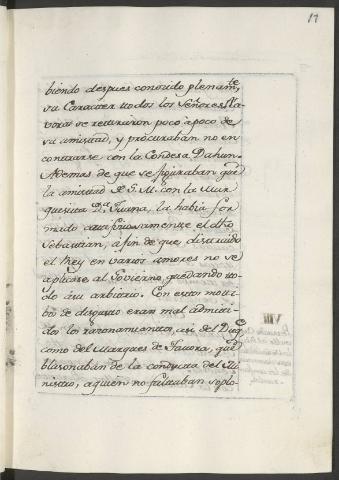 17
biendo despues conocido plenamte
su Caracter todos los Señores Ta
voras se retiraron poco à poco de
su amistad, y procuraban no en
contrarse con la Condesa Dahun.
Ademas de que se figuraban qûe
la amistad de S. M. con la Mar
quesita Da. Juana, la habia for
mado artificiosamente el dho
Sebastian, à fin de que distraido
el Rey en varios amores no se
aplicase al Govierno, quedando to
do à su arbitrio. Con estos moti
bos de disgusto eran mal admiti
dos los razonamientos, asi del Duq.
como del Marques de Tavora, qûe
blasonaban de la conducta del Mi
nistro, à quien no faltaban soplo-
VIII